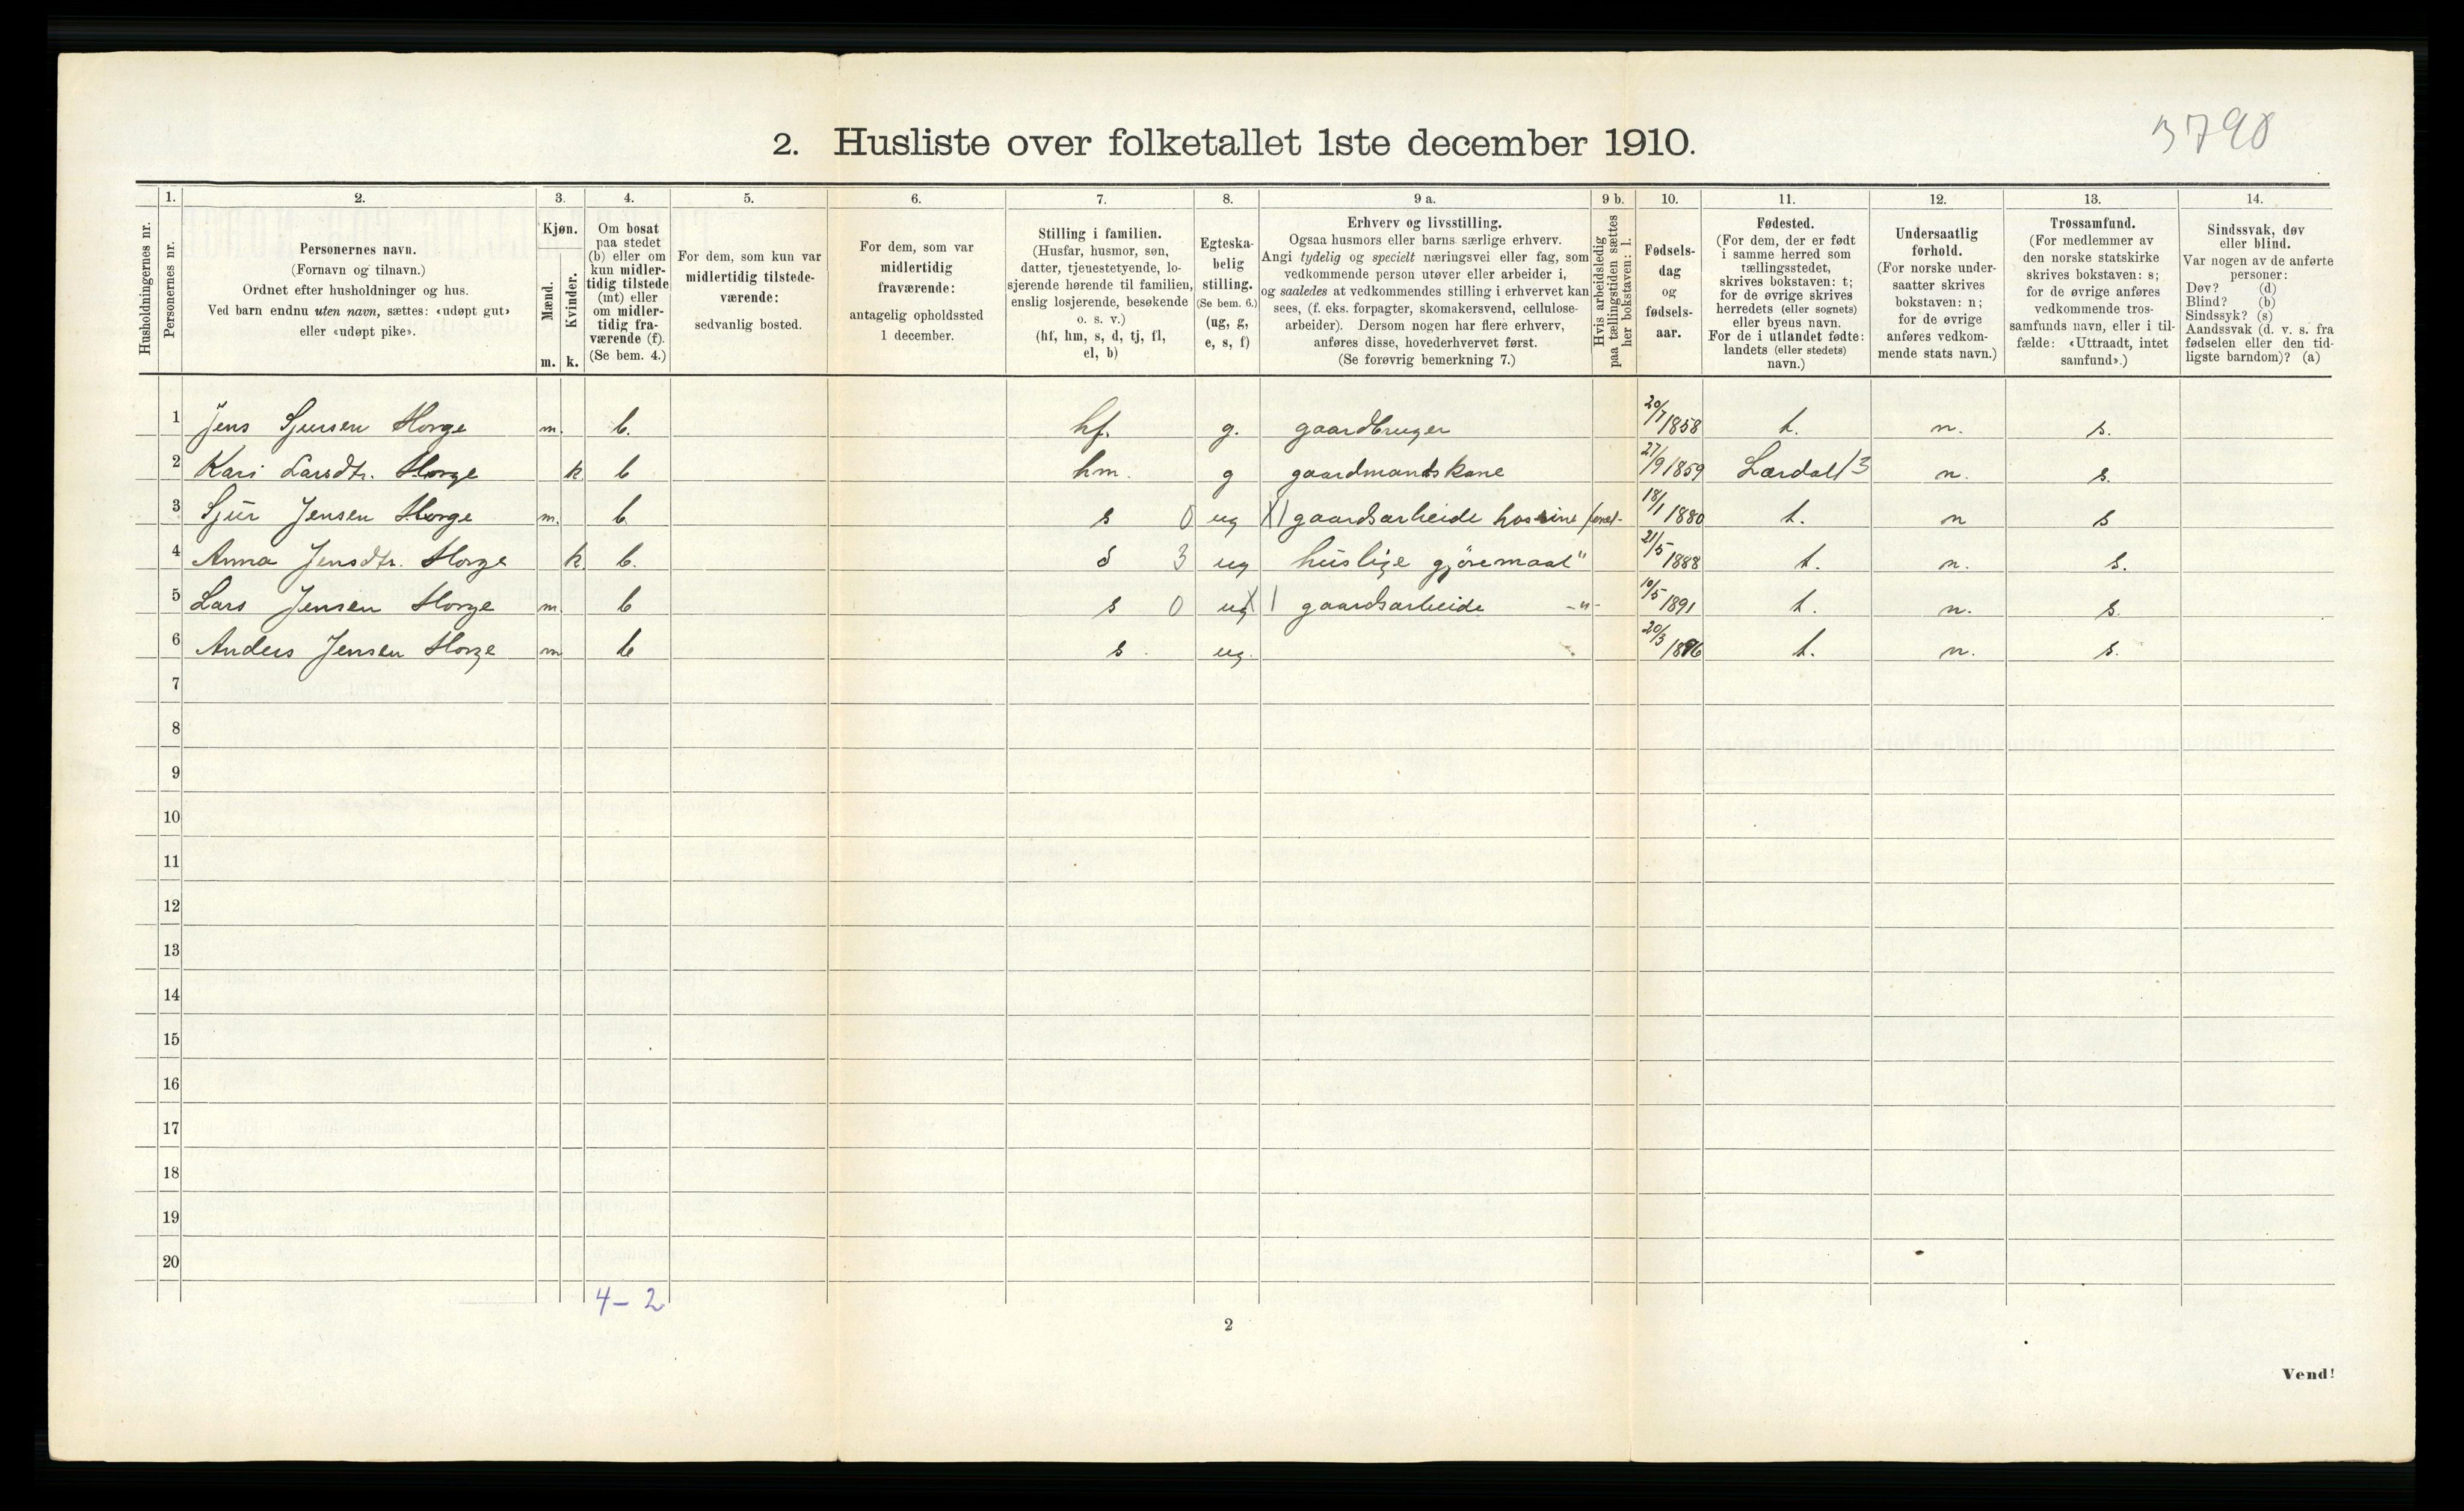 3790
2. Husliste over folketallet 1ste december 1910.
Husholdningernes nr.
1.
Personernes nr.
2.
Personernes navn.
(Fornavn og tilnavn.)
Ordnet efter husholdninger og hus.
Ved barn endnu uten navn, sættes: «udøpt gut»
eller «udøpt pike».
3.
Kjøn.
Mænd.
Kvinder.
m. k.
4.
Om bosat
paa stedet
(b) eller om
kun midler-
tidig tilstede
(mt) eller
om midler-
tidig fra-
værende (f).
(Se bem. 4.)
5.
For dem, som kun var
midlertidig tilstede-
værende:
sedvanlig bosted.
6.
For dem, som var
midlertidig
fraværende:
antagelig opholdssted
1 december.
7.
Stilling i familien.
(Husfar, husmor, søn,
datter, tjenestetyende, lo-
sjerende hørende til familien,
enslig losjerende, besøkende
o. s. v.)
(hf, hm, s, d, tj, fl,
el, b)
8.
Egteska-
belig
stilling.
(Se bem. 6.)
(ug, g,
e, s, f)
9 a.
Erhverv og livsstilling.
Ogsaa husmors eller barns særlige erhverv.
Angi tydelig og specielt næringsvei eller fag, som
vedkommende person utøver eller arbeider i,
og saaledes at vedkommendes stilling i erhvervet kan
sees, (f. eks. forpagter, skomakersvend, cellulose-
arbeider). Dersom nogen har flere erhverv,
anføres disse, hovederhvervet først.
(Se forøvrig bemerkning 7.)
9 b.
Hvis arbeidsledig
paa tællingstiden sættes
her bokstaven: l.
10.
Fødsels-
dag
og
fødsels-
aar.
11.
Fødested.
(For dem, der er født
i samme herred som
tællingsstedet,
skrives bokstaven: t;
for de øvrige skrives
herredets (eller sognets)
eller byens navn.
For de i utlandet fødte:
landets (eller stedets)
navn.)
12.
Undersaatlig
forhold.
(For norske under-
saatter skrives
bokstaven: n;
for de øvrige
anføres vedkom-
mende stats navn.)
13.
Trossamfund.
(For medlemmer av
den norske statskirke
skrives bokstaven: s;
for de øvrige anføres
vedkommende tros-
samfunds navn, eller i til-
fælde: «Uttraadt, intet
samfund».)
14.
Sindssvak, døv
eller blind.
Var nogen av de anførte
personer:
Døv? (d)
Blind? (b)
Sindssyk? (s)
Aandssvak (d. v. s. fra
fødselen eller den tid-
ligste barndom)? (a)
1 Jens Sjursen Horge m. b. hf. g. gaardbruger 20/7 1858 t. n. s.
2 Kari Larsdtr. Horge k b hm. g gaardmandskone 27/9 1859 Lærdal 13 n. s.
3 Sjur Jensen Horge m. b. s 0 ug X 1 gaardsarbeide hos sine 18/1 1880 t. n s
4 Anna Jensdtr. Horge k. b. d 3 ug huslige gjøremaal " 21/5 1888 t. n. s.
5 Lars Jensen Horge m. b s 0 ug X 1 gaardsarbeide -"- 10/5 1891 t. n. s.
6 Anders Jensen Horge m b s ug. 20/3 1896 t. n. s.
7
8
9
10
11
12
13
14
15
16
17
18
19
20
4 - 2
2
Vend!